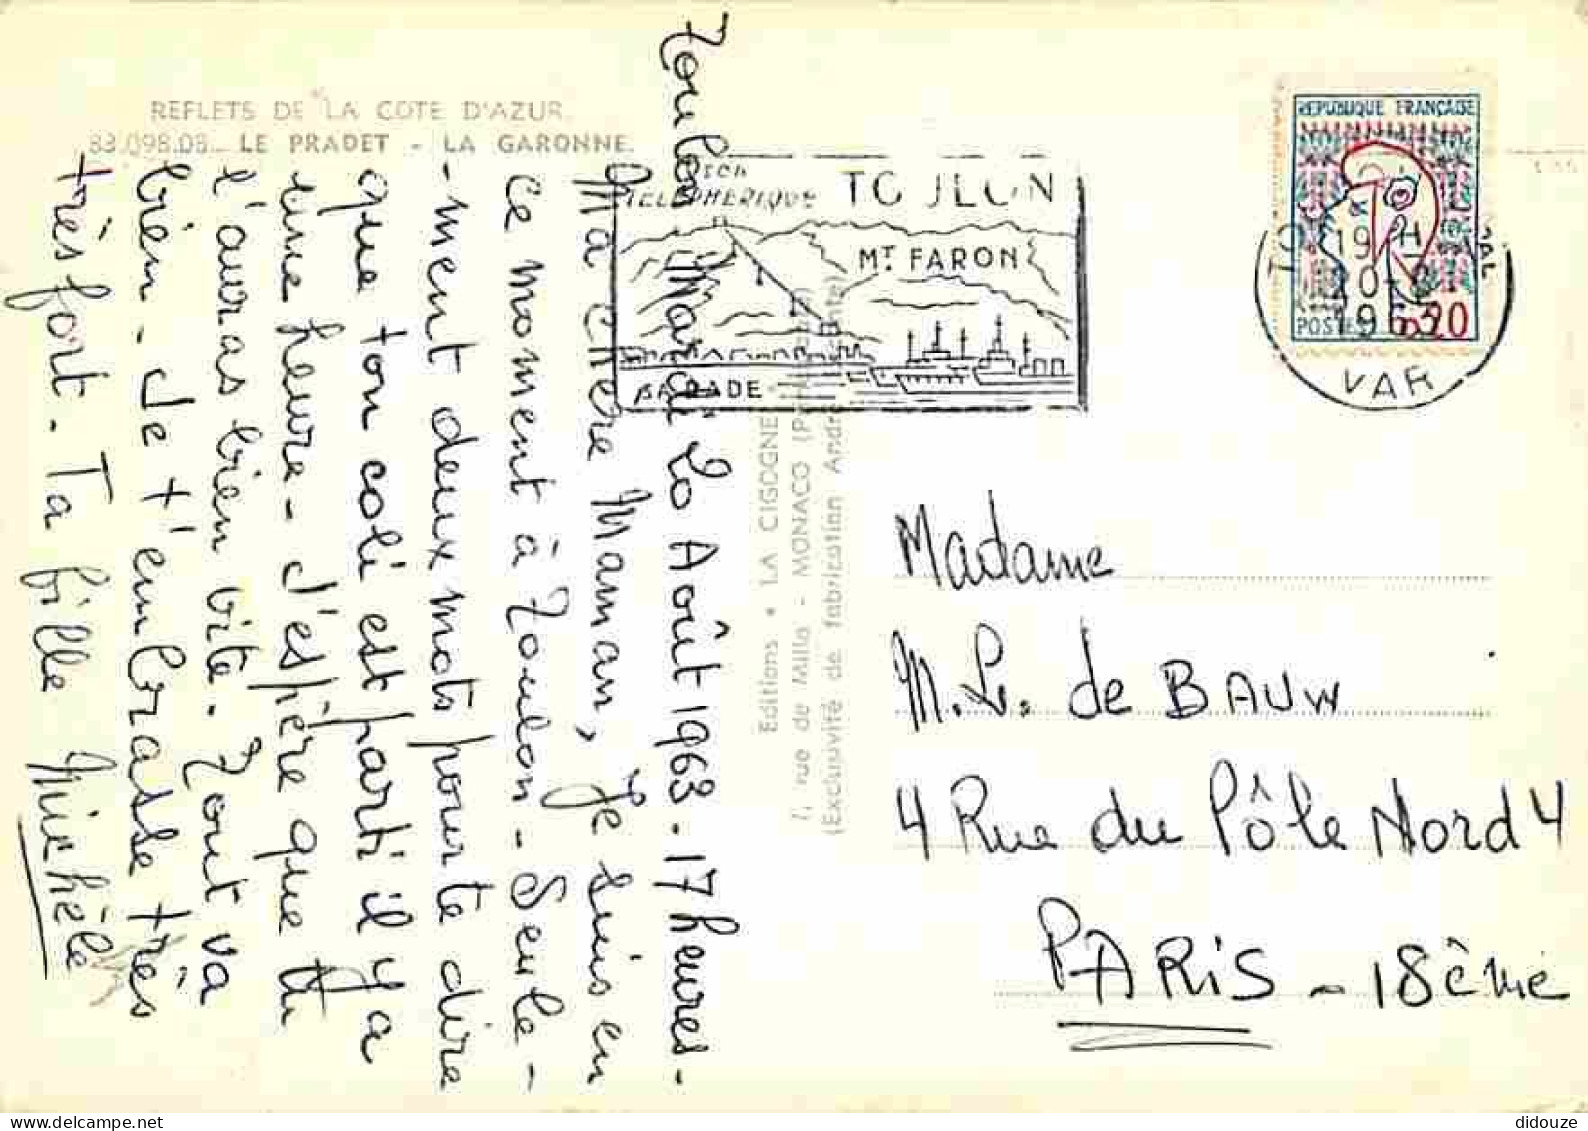 REFLETS DE LA COTE D'AZUR
83.098.08 _ LE PRADET - LA GARONNE.
TELEPHERIQUE
TOULON
MT FARON
LA RADE
REPUBLIQUE FRANÇAISE
POSTES 0,20
19 H
20 - 8
1963
VAR
Toulon Mardi 20 Août 1963 - 17 heures -
Ma chère Maman, Je suis en
ce moment à Toulon - Seule-
-ment deux mots pour te dire
que ton coli est parti il y a
une heure - J'espère que tu
l'auras bien vite. Tout va
bien - Je t'embrasse très
très fort - Ta fille Michèle
Editions • LA CIGOGNE
7, rue de Millo - MONACO
(Exclusivité de fabrication André
Madame
M. L. de BAUW
4 Rue du Pôle Nord 4
PARIS - 18ème
didouze